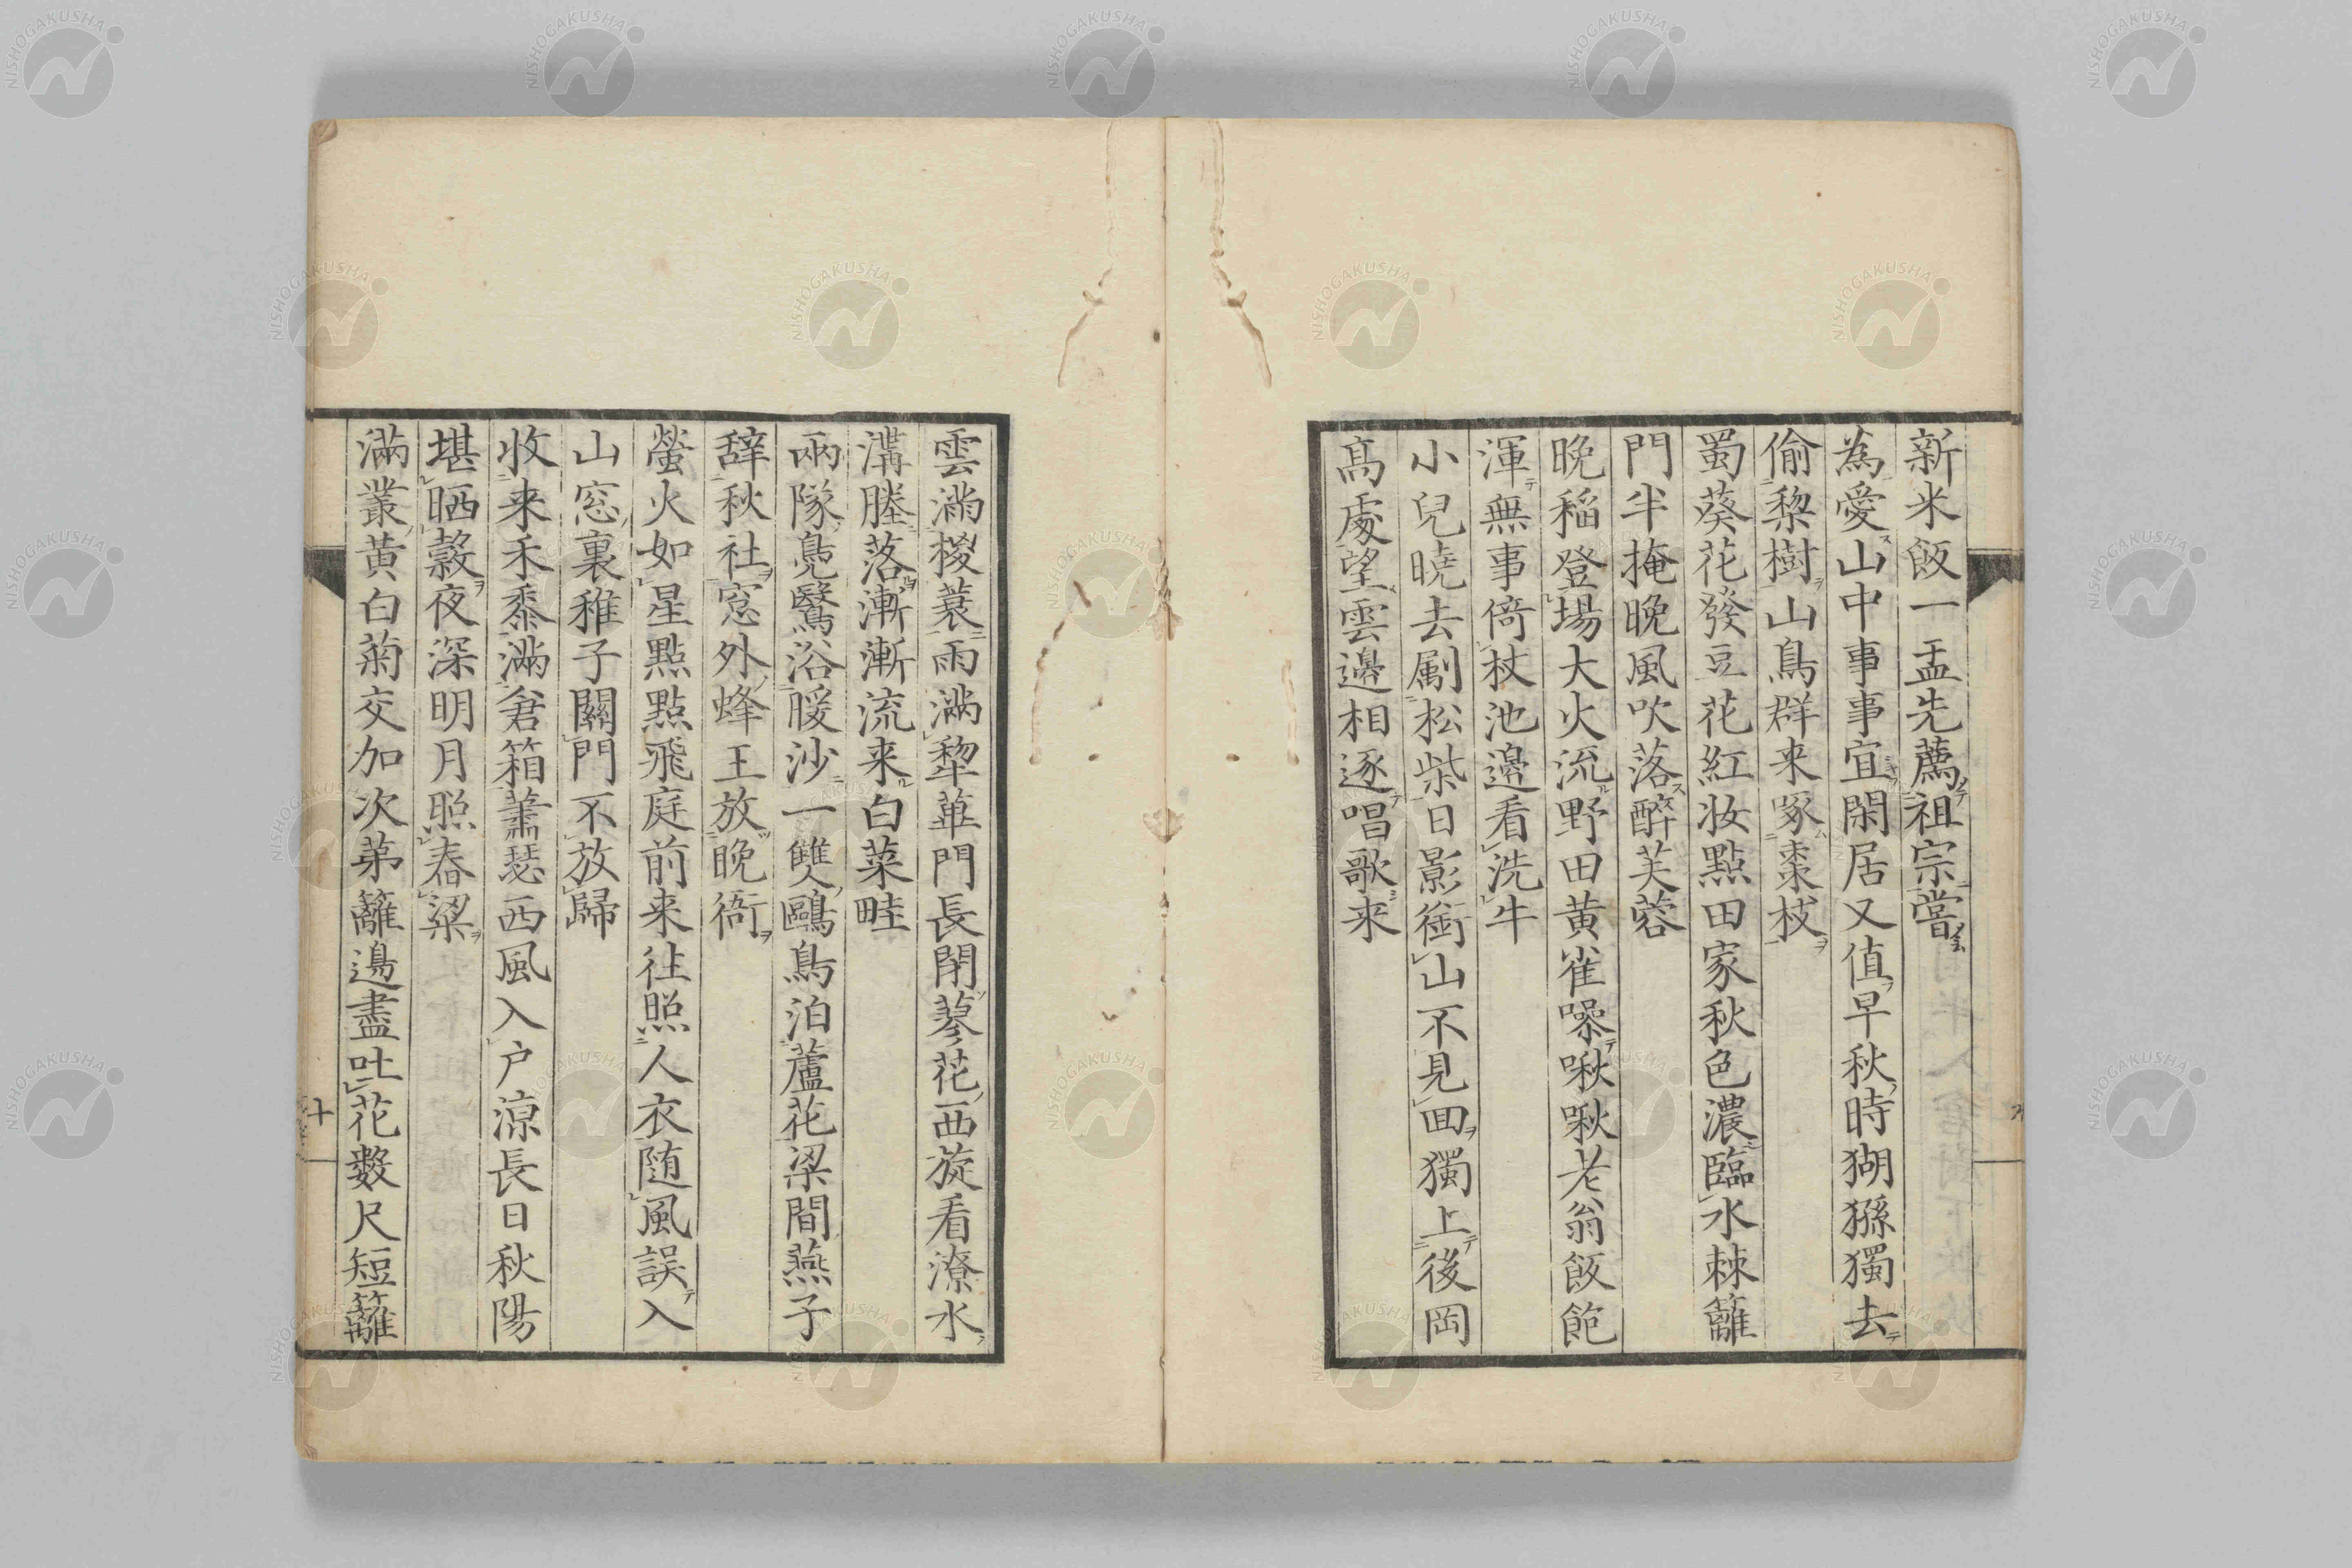 新米飯一盂先薦祖宗嘗
為愛山中事事宜閑居又值早秋時猢猻獨去
偷黎樹山鳥群来啄棗枝
蜀葵花發豆花紅妝點田家秋色濃臨水棘籬
門半掩晩風吹落醉芙蓉
晩稲登場大火流野田黄雀噪啾啾老翁飯飽
渾無事倚杖池邊看洗牛
小兒曉去劚松柴日影銜山不見回獨上後岡
髙處望雲邊相逐唱歌来
雲滿椶蓑雨滿犂蓽門長閉蓼花西旋看潦水
溝塍落漸漸流来白菜畦
兩隊鳧鷖浴暖沙一雙鷗鳥泊蘆花梁間燕子
辞秋社窓外蜂王放晩衙
螢火如星點點飛庭前来往照人衣随風誤入
山窓裏稚子關門不放歸
收来禾黍滿倉箱蕭瑟西風入户涼長日秋陽
堪晒穀夜深明月照舂粱
滿叢黄白菊交加次苐籬邊盡吐花數尺短籬
十
NISHOGAKUSHA